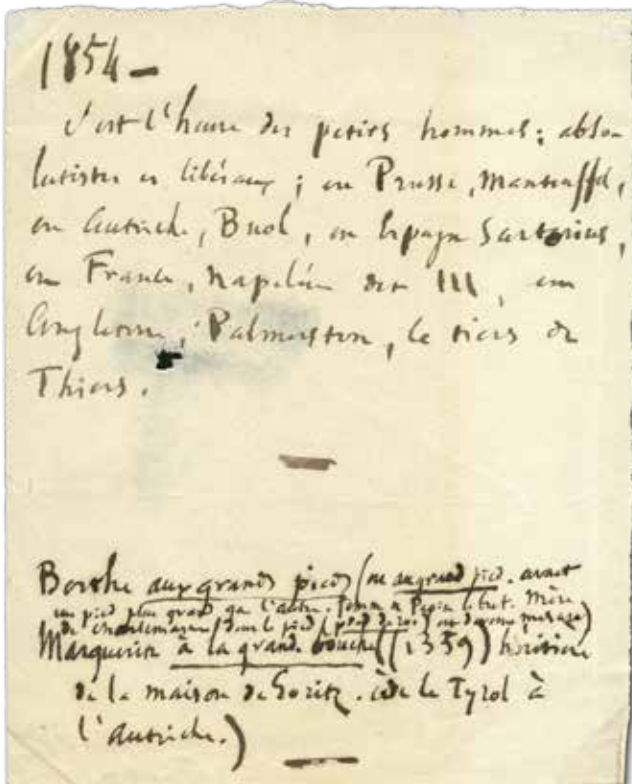 1854 —
C'est l'heure des petits hommes; abso-
lutistes et libéraux; en Prusse, Manteuffel,
en Autriche, Buol, en Espagne Sartorius,
en France, Napoléon dit III, en
Angleterre, Palmerston, le tiers de
Thiers.
Berthe aux grands pieds (ou au grand pied. avait
un pied plus grand que l'autre. femme de Pepin le bref. Mère
de Charlemagne dont le pied (pied de roi) est devenu mesure)
Marguerite à la grande bouche ((1359) héritière
de la maison de Goritz. cède le Tyrol à
l'Autriche.)